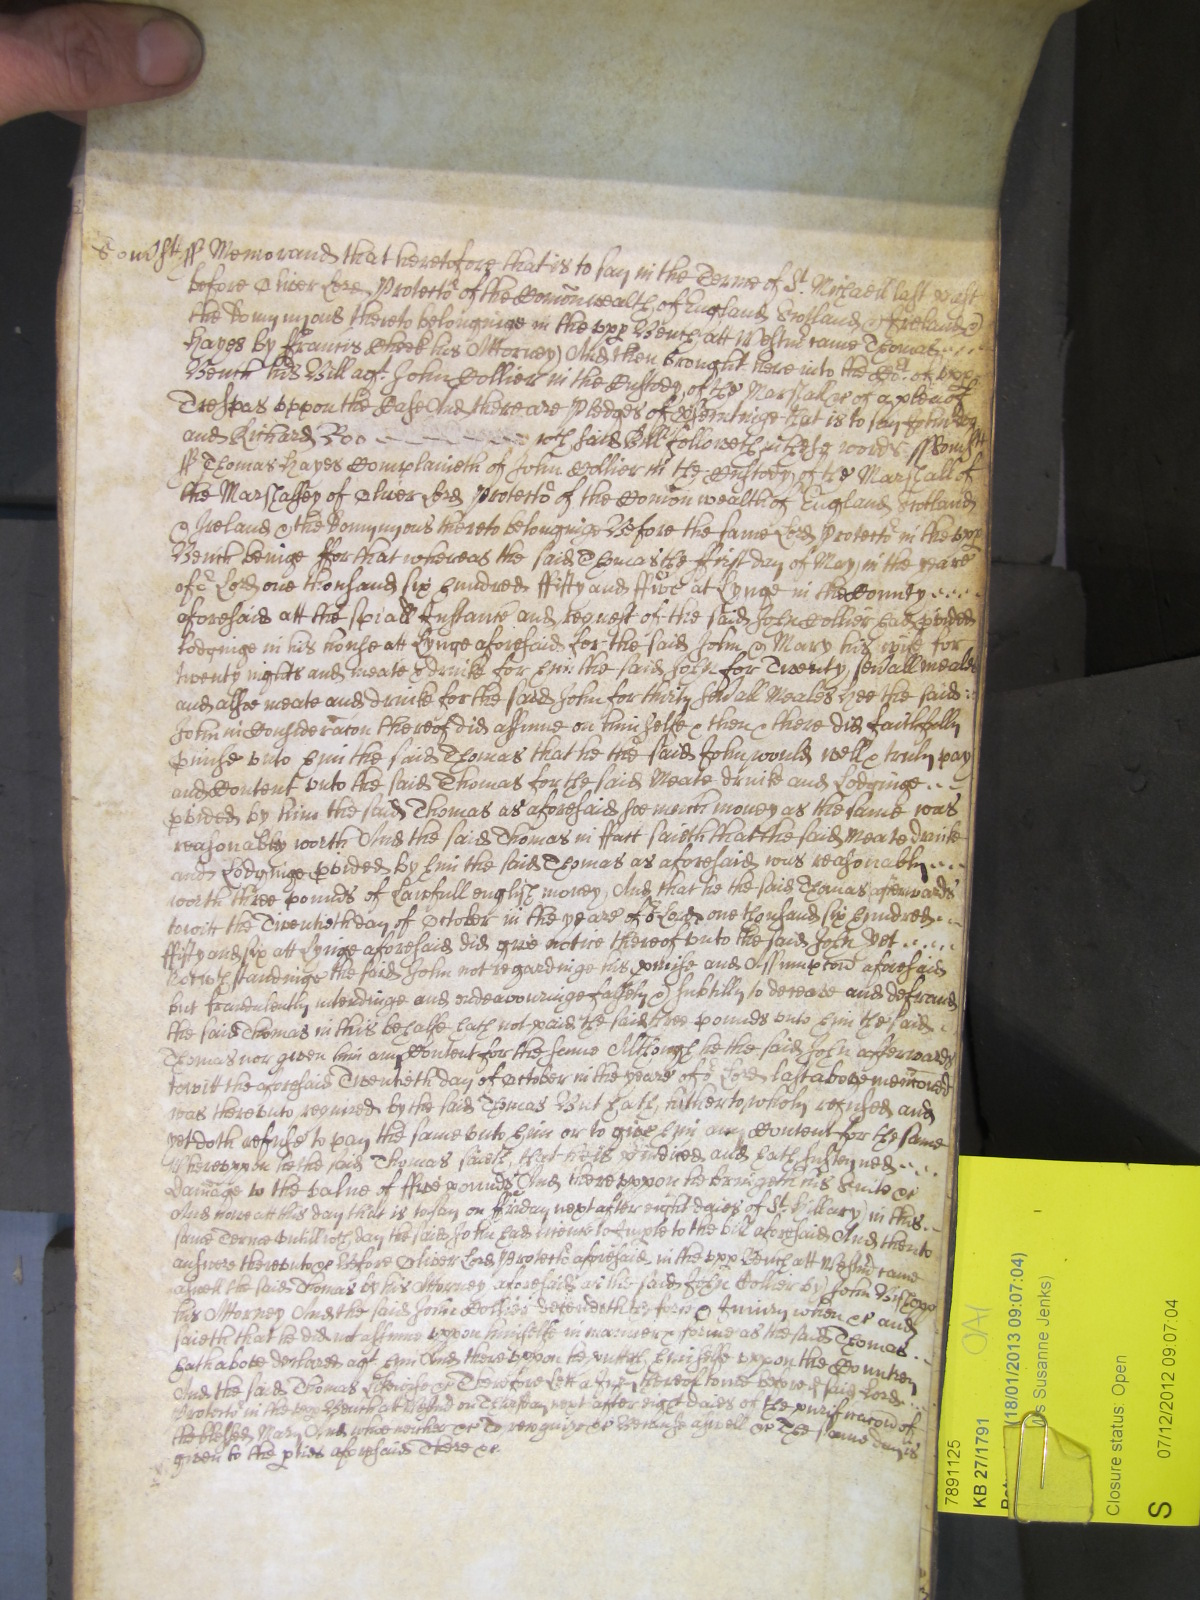 Somst ss Memorand that heretofore that is to say in the Terme of St. Michaell last past
before Oliver Lord Protector of the Comonwealth of England Scotland & Ireland &
the Domynyons thereto belonginge in the upp Bench att Westmr came Thomas
Hayes by Francis Cheek his Attorney And then brought here into the Cort of upp
Bench his Bill agt John Collier in the Custody of the Marshall &c of a plea of
Trespas uppon the Case And there are Pledges of prosecutinge that is to say John Doe
and Richard Roo wch said Bill followeth in these words ss Somst
ss Thomas Hayes Complaineth of John Collier in the Custody of the Marshall of
the Marshalsey of Oliver Lord Protector of the Comon wealth of England Scotland
& Ireland & the Domynyons thereto belonginge Before the same Lord Protector in the upp
Bench beinge ffor that whereas the said Thomas the ffirst day of May in the yeare
of or Lord one thousand six hundred ffifty and ffive at Lynge in the County
aforesaid att the speciall Instance and request of the said John Collier had pvided
Lodginge in his house att Lynge aforesaid for the said John & Mary his wife for
twenty nights and meate & drinke for him the said John for Twenty sevall meales
and alsoe meate and drinke for the said John for thirty sevall Meales hee the said
John in Consideracon thereof did assume on himselfe & then & there did faithfully
pmise unto him the said Thomas that he the said John would well & truly pay
and Content unto the said Thomas for the said Meate drinke and Lodginge
pvided by him the said Thomas as aforesaid soe much money as the same was
reasonably worth And the said Thomas in ffact saieth that the said meate drinke
and Lodginge pvided by him the said Thomas as aforesaid was reasonably
worth three pounds of Lawfull english money And that he the said Thomas afterwards
towitt the Twentieth day of October in the yeare of or Lord one thousand six hundred
ffifty and six att Lynge aforesaid did give notice thereof unto the said John Yet
Notwthstandinge the said John not regardinge his pmise and Assumpcon aforesaid
but fraudulently intendinge and endeavouringe falsely & subtilly to deceave and defraud
the said Thomas in this behalfe hath not paid the said three pounds unto him the said
Thomas nor given him any Content for the same Although he the said John afterwards
towitt the aforesaid Twentieth day of October in the yeare of or Lord last above menconed
was thereunto required by the said Thomas But hath hitherto wholy refused and
yet doth refuse to pay the same unto him or to give him any Content for the same
Whereuppon he the said Thomas saieth that he is piudiced and hath susteyned
Damage to the value of ffive pounds And thereuppon he bringeth his Suite &c
And nowe att this day that is to say on ffriday next after eight daies of St. Hillary in this
same Terme untill wch day the said John had licence to Imple to the bill aforesaid And then to
answere thereunto &c Before Oliver Lord Protector aforesaid in the upp Bench att Westmr came
aswell the said Thomas by his Attorney aforesaid as the said John Collier by John Bishopp
his Attorney And the said John Collier defendeth the force & Iniury when &c and
saieth that he did not assume uppon himselfe in manner & forme as the said Thomas
hath above declared agt him And thereuppon he putteth himselfe uppon the Country
And the said Thomas Likewise &c Therefore Lett a Jury thereof come before the said Lord
Protector in the upp Bench at Westmr on Thursday next after eight daies of the purificacon of
the blessed Mary And who neither &c To recognize &c Because aswell &c The same day is
given to the pties aforesaid There &c
7891125
KB 27/1791
(18/01/2013 09:07:04)
Susanne Jenks)
Closure status: Open
S
07/12/2012 09:07:04